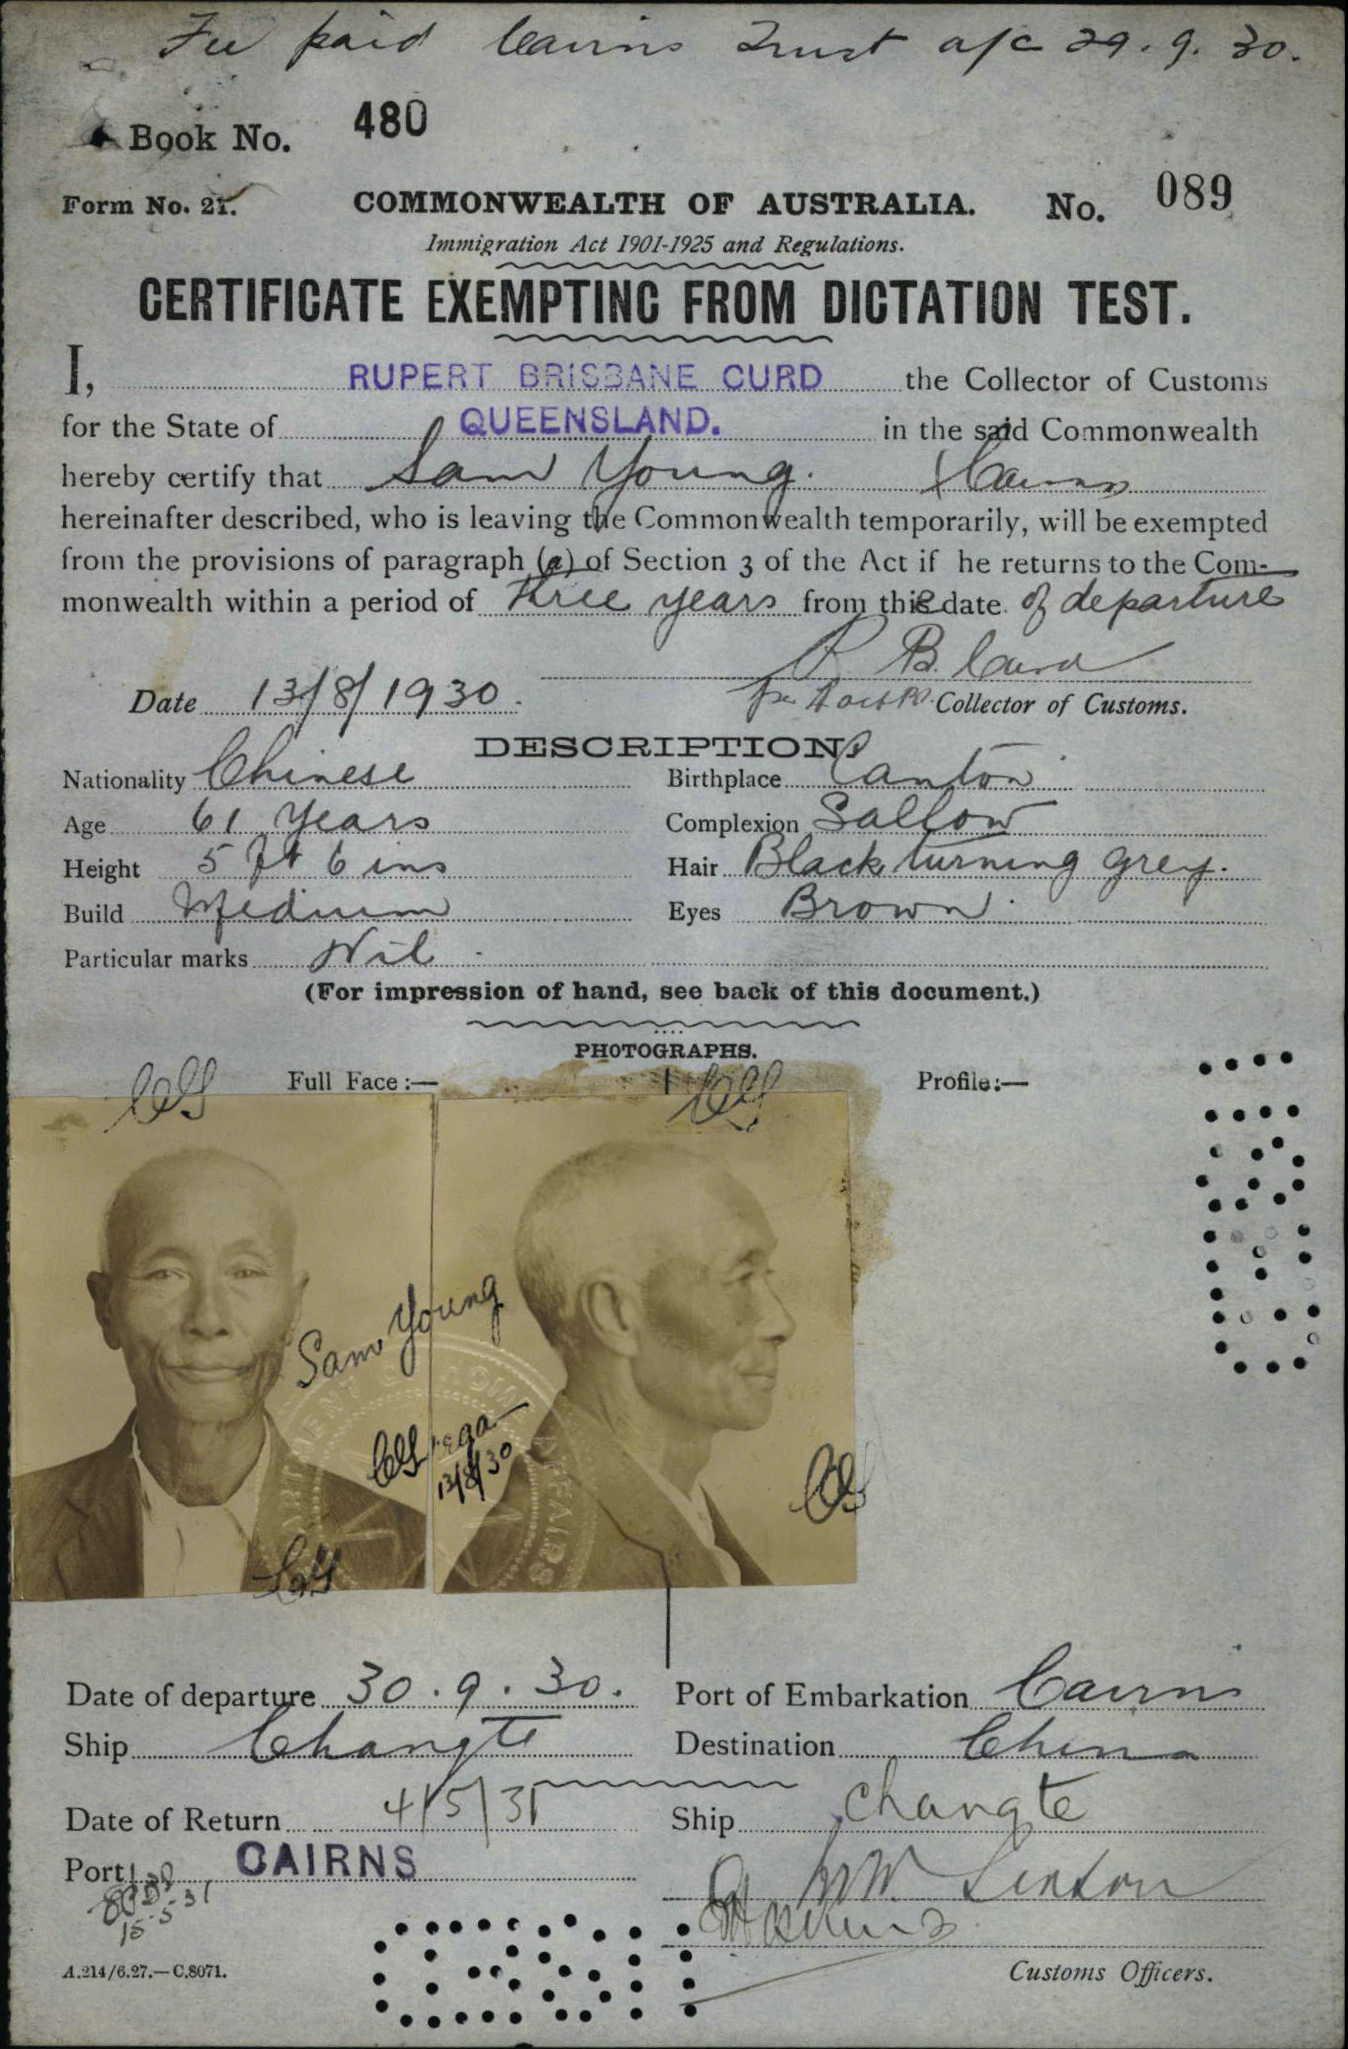 Fee paid Cairns Trust a/c 29.9.30.
Book No. 480
Form No. 21.
COMMONWEALTH OF AUSTRALIA.
No. 089
Immigration Act 1901-1925 and Regulations.
CERTIFICATE EXEMPTING FROM DICTATION TEST.
I, RUPERT BRISBANE CURD the Collector of Customs
for the State of QUEENSLAND. in the said Commonwealth
hereby certify that Sam Young. Cairns
hereinafter described, who is leaving the Commonwealth temporarily, will be exempted
from the provisions of paragraph (a) of Section 3 of the Act if he returns to the Com-
monwealth within a period of three years from the date of departure
R B. Curd
Date 13/8/1930.
Collector of Customs.
DESCRIPTION.
Nationality Chinese
Birthplace Canton
Age 61 Years
Complexion Sallow
Height 5 ft 6 ins
Hair Black turning grey.
Build Medium
Eyes Brown
Particular marks Nil
(For impression of hand, see back of this document.)
PHOTOGRAPHS.
Full Face:—
Profile:—
Sam Young
13/8/30
Date of departure 30.9.30.
Port of Embarkation Cairns
Ship Changte
Destination China
Date of Return 4/5/31
Ship Changte
Port CAIRNS
15.5.31
A.214/6.27.—C.8071.
Customs Officers.